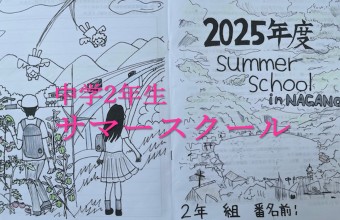 2025年度
Summer
School
in NAGANO
中学2年生
サマースクール
2年 組 番名前: